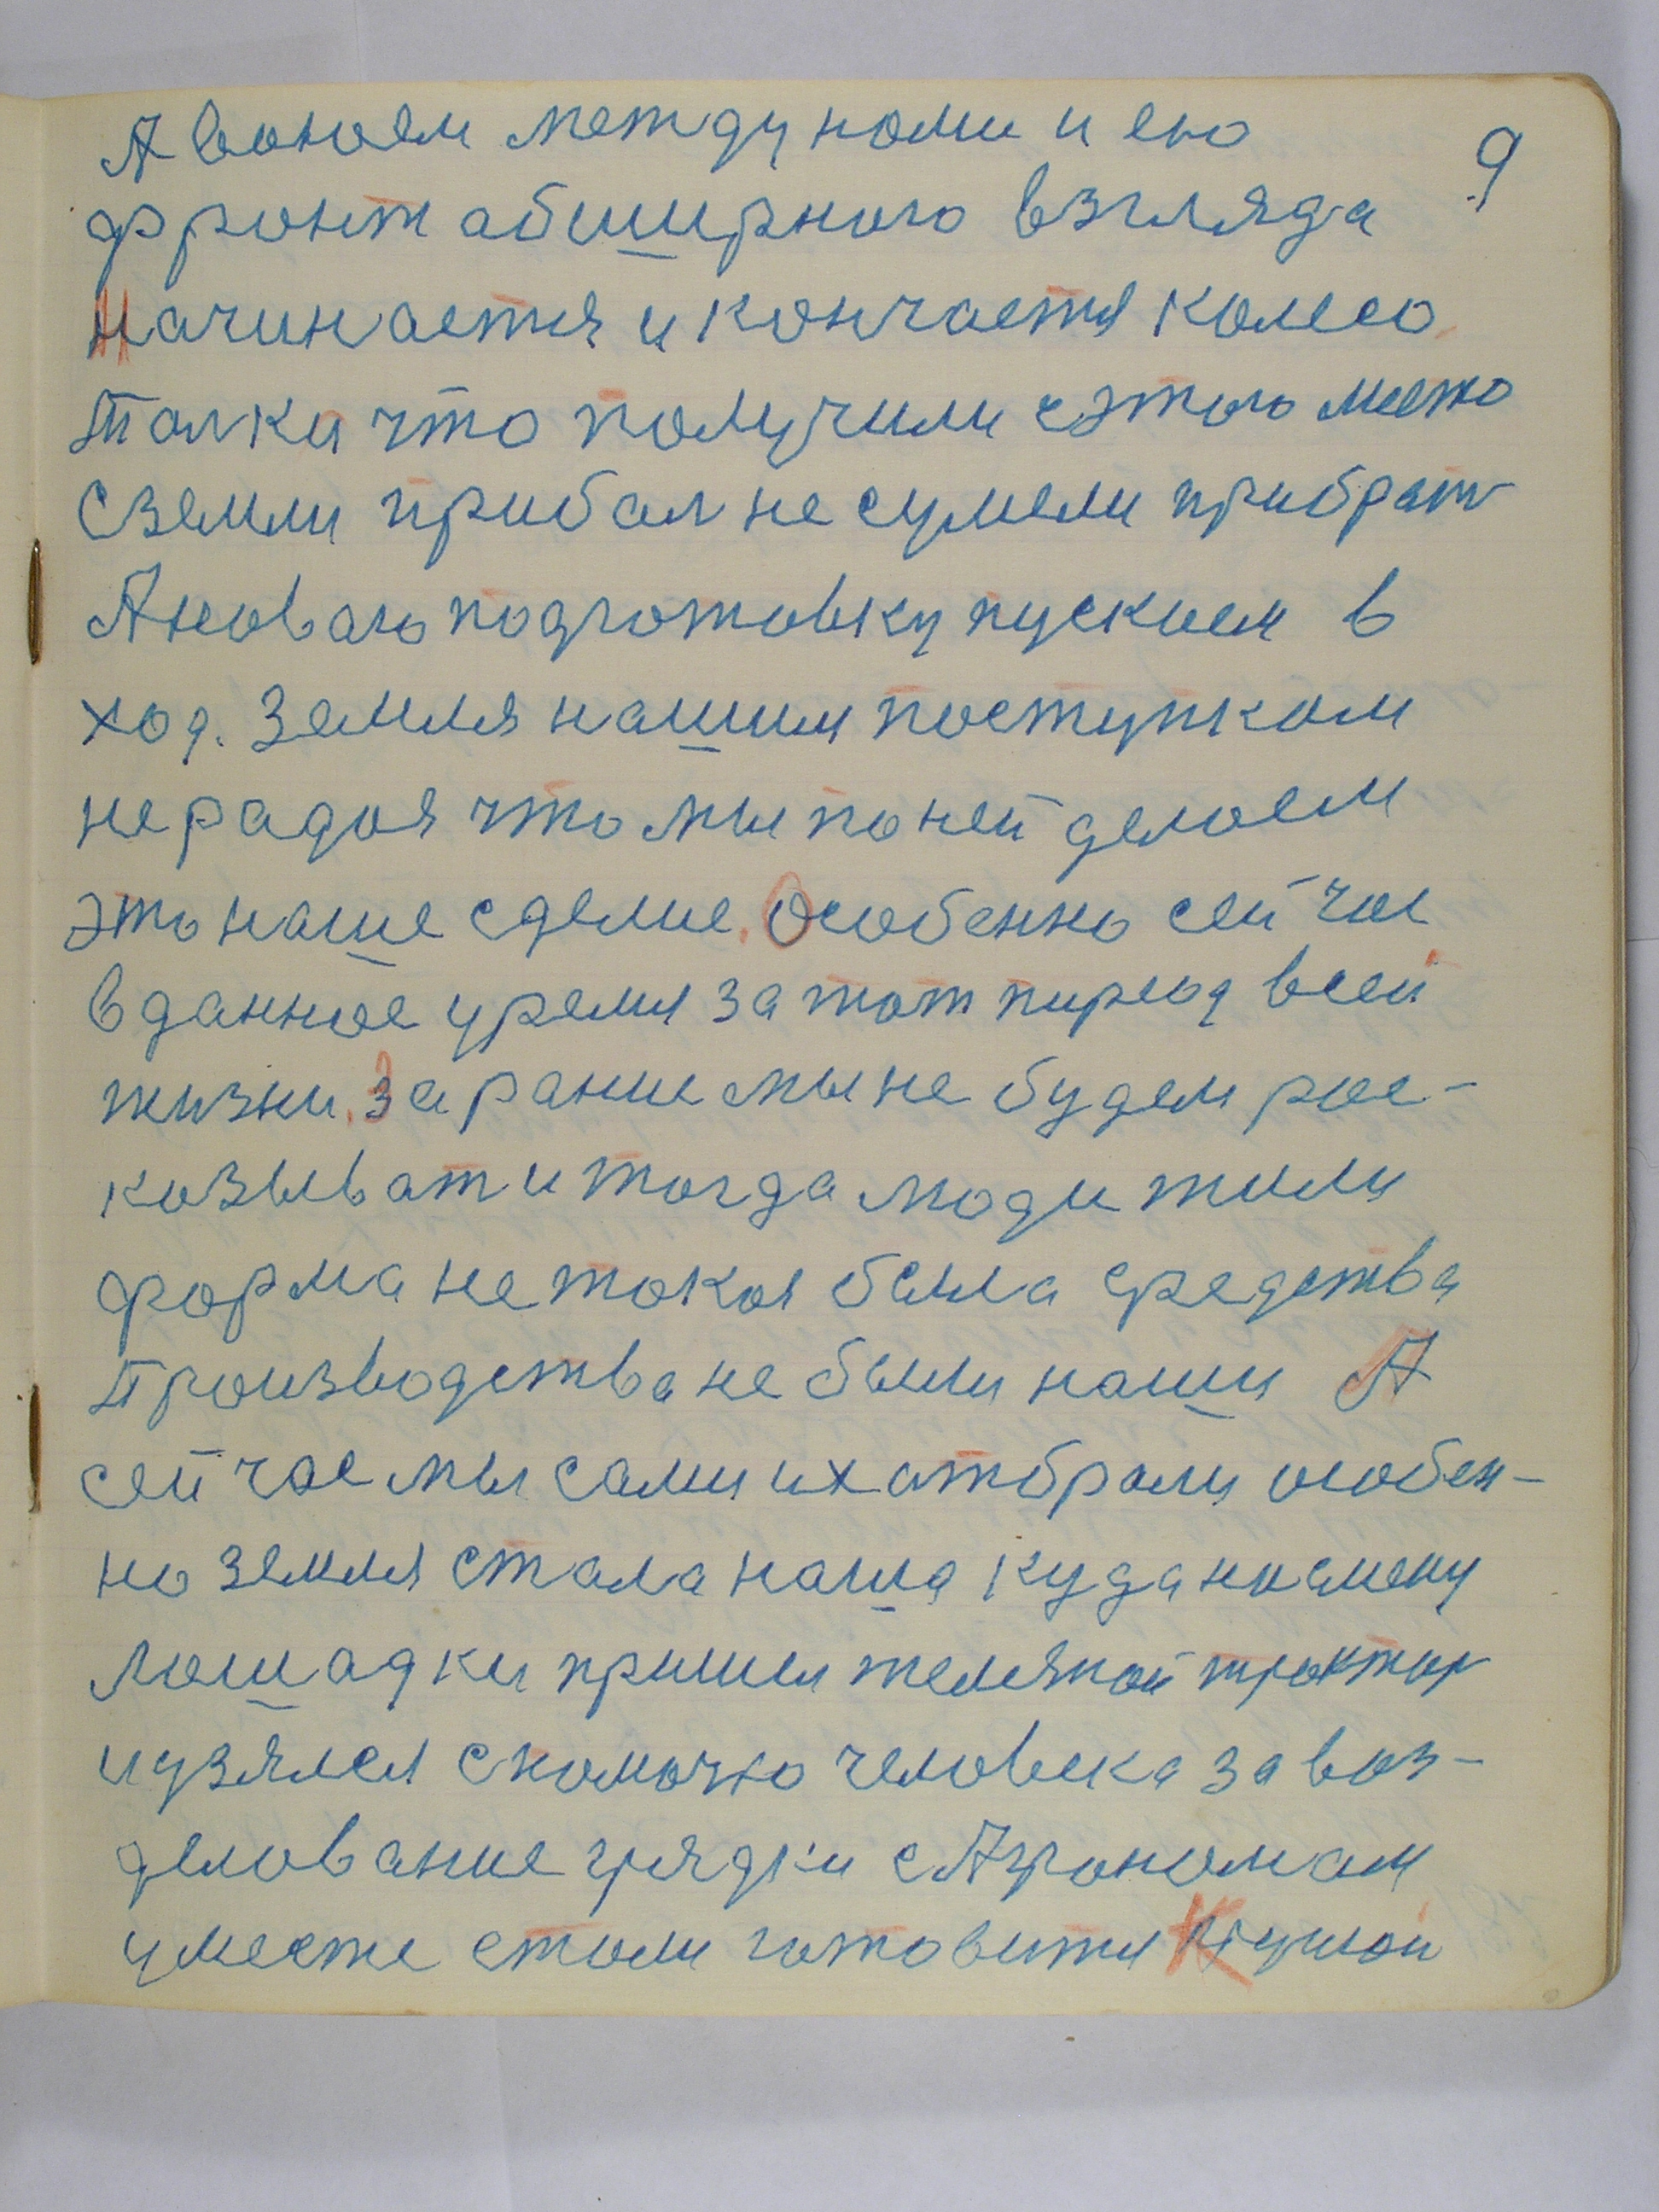 А воюем между нами и ею
9
фронт абширного взгляда
начинается и кончается колесо
Толка что получили сэтого место
Сземли прибал не сумели прибрат
Ановаю подготовку пускаем в
ход. Земля нашим поступкам
не радая что мы по ней делаем
это наше сделие. Особенно сей час
в данное уремя за тот пиреод всей
жизни. За рание мы не будем рас-
козыват и тогда люди жили
форма не токая была средства
Производства не были наши А
сей час мы сами их атобрали особен-
но земля стала наша куда на смену
лошадки пришел железной трактор
иузялся спомочю человека за воз-
делование грядки сАгрономам
уместе стали готовится Кгушой